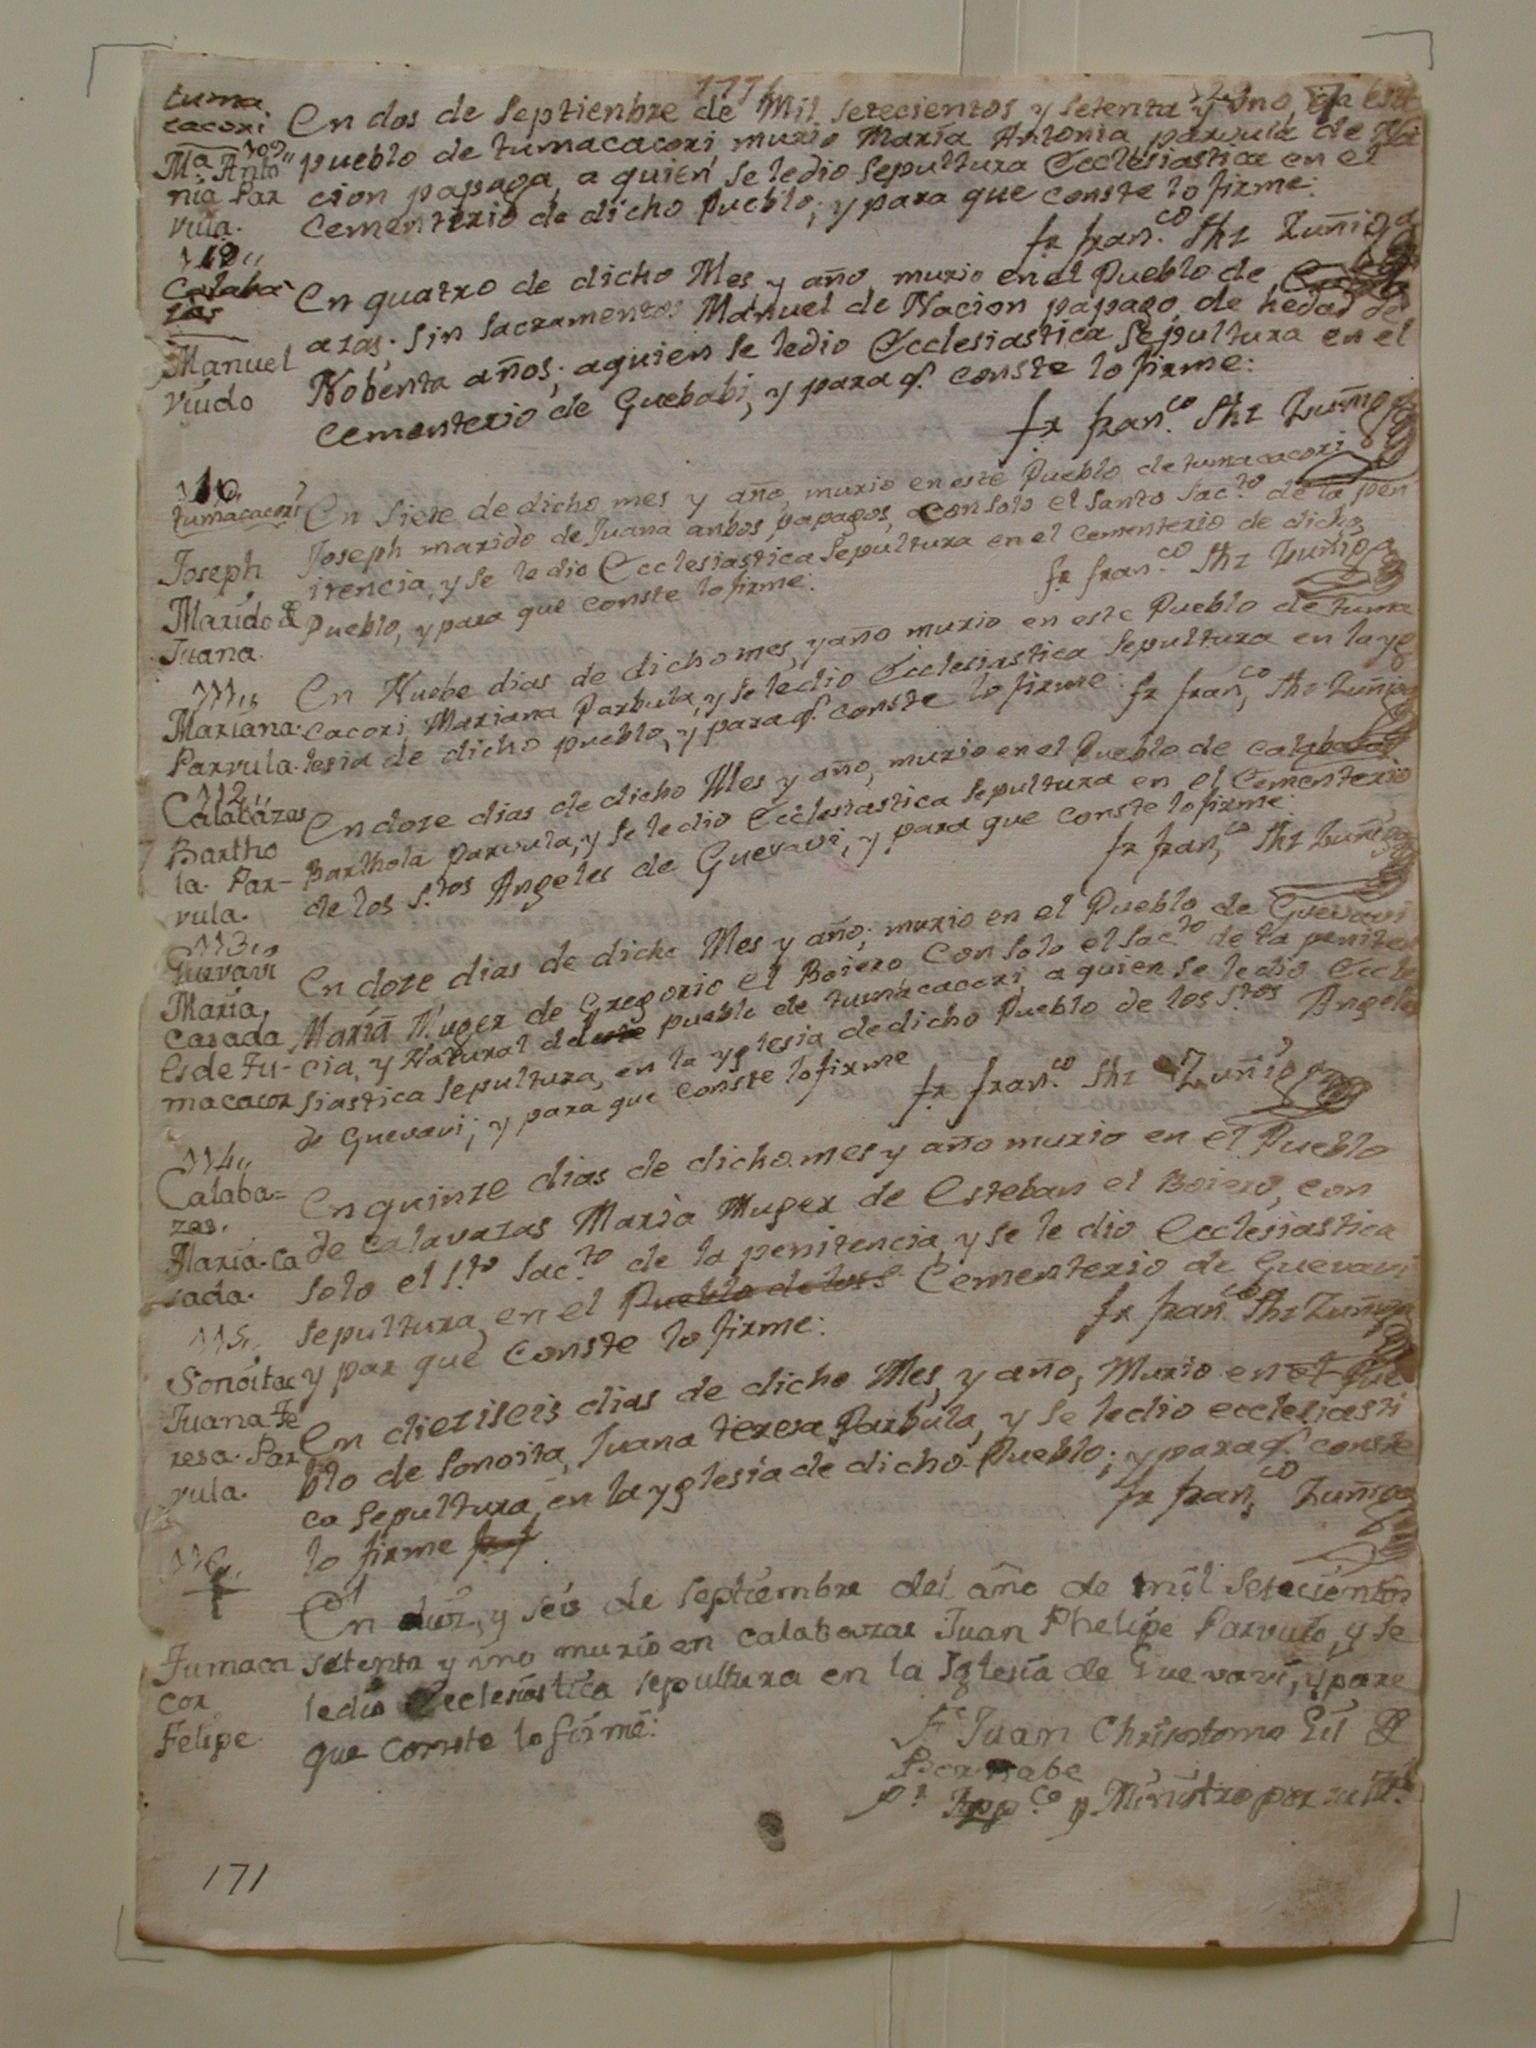 1771
tuma
cacori
109,,
Ma. Anto
nia Par
vula.
En dos de Septienbre de Mil setecientos y setenta y uno, en este
pueblo de tumacacori murio Maria Antonia parvula de Na
cion papaga, a quien se le dio sepultura Ecclesiastica en el
Cementerio de dicho Pueblo; y para que conste lo firme:
fr fran.co Shz Zuñiga
Calaba
zas
Manuel
Viudo
En quatro de dicho Mes y año murio en el Pueblo de
azas; sin sacramentos Manuel de Nacion papago, de hedad de
Nobenta años; a quien se le dio Ecclesiastica Sepultura en el
Cementerio de Guebabi, y para q.e conste lo firme:
fr fran.co Shz Zuñiga
tumacacori
Joseph
Marido de
Juana.
En Siete de dicho mes y año, murio en este Pueblo de tumacacori
Joseph marido de Juana anbos papagos, con solo el santo Sac.to de la pen
itencia, y se le dio Ecclesiastica Sepultura en el Cementerio de dicho
Pueblo, y para que conste lo firme:
fr fran.co Shz Zuñiga
111,,
Mariana.
Parvula.
En Nuebe dias de dicho mes, y año murio en este Pueblo de Tuma
cacori, Mariana Parbula, y se le dio Ecclesiastica Sepultura en la yg
lesia de dicho pueblo, y para q.e conste lo firme:
fr fran,co Shz Zuñiga
112,,
Calabázas
Bartho
la. Par-
vula.
En doze dias de dicho Mes y año, murio en el Pueblo de Calabazas
Barthola parvula, y se le dio Ecclesiastica Sepultura en el Cementerio
de los S.tos Angeles de Guevavi, y para que conste lo firme:
fr fran,co Shz Zuñiga
113,,
Guevavi
Maria,
Casada
es de Tu-
macacor
En doze dias de dicho Mes y año; murio en el Pueblo de Guevavi
Maria Muger de Gregorio el Boiero Con solo el Sac.to de la peniten
cia, y Natural de este pueblo de tumacacori, a quien se le dio Eccle
siastica Sepultura, en la yglesia de dicho Pueblo de los S.tos Angeles
de Guevavi; y para que conste lo firme
fr fran.co Shz Zuñiga
114,,
Calaba=
zas.
Maria. Ca
sada.
En quinze dias de dicho mes y año murio en el Pueblo
de Calavazas Maria Muger de Esteban el Boiero, con
solo el S.to Sac.to de la penitencia, y se le dio Ecclesiastica
sepultura en el Pueblo de los S. Cementerio de Guevavi
y par que Conste lo firme:
fr fran.co Shz Zuñiga
115,,
Sonoitac
Juana Te
resa. Par
vula.
En dieziseis dias de dicho Mes, y año, Murio en el Pue
blo de Sonoita, Juana teresa Parbula, y se le dio ecclesiasti
ca sepultura, en la yglesia de dicho Pueblo; y para q.e conste
lo firme
fr fran,co Zuñiga
116,,
Tumaca
cor
Felipe
En diez, y seis de septiembre del año de mil setecientos
setenta y uno murio en calabazas Juan Phelipe Parvulo, y se
le dio Ecclesiastica sepultura en la Iglesia de Guevavi, y para
que conste lo firmé:
Fr Juan Chrisostomo Gil de
Bernabe
Pr. Appco y Ministro por su M.d
171